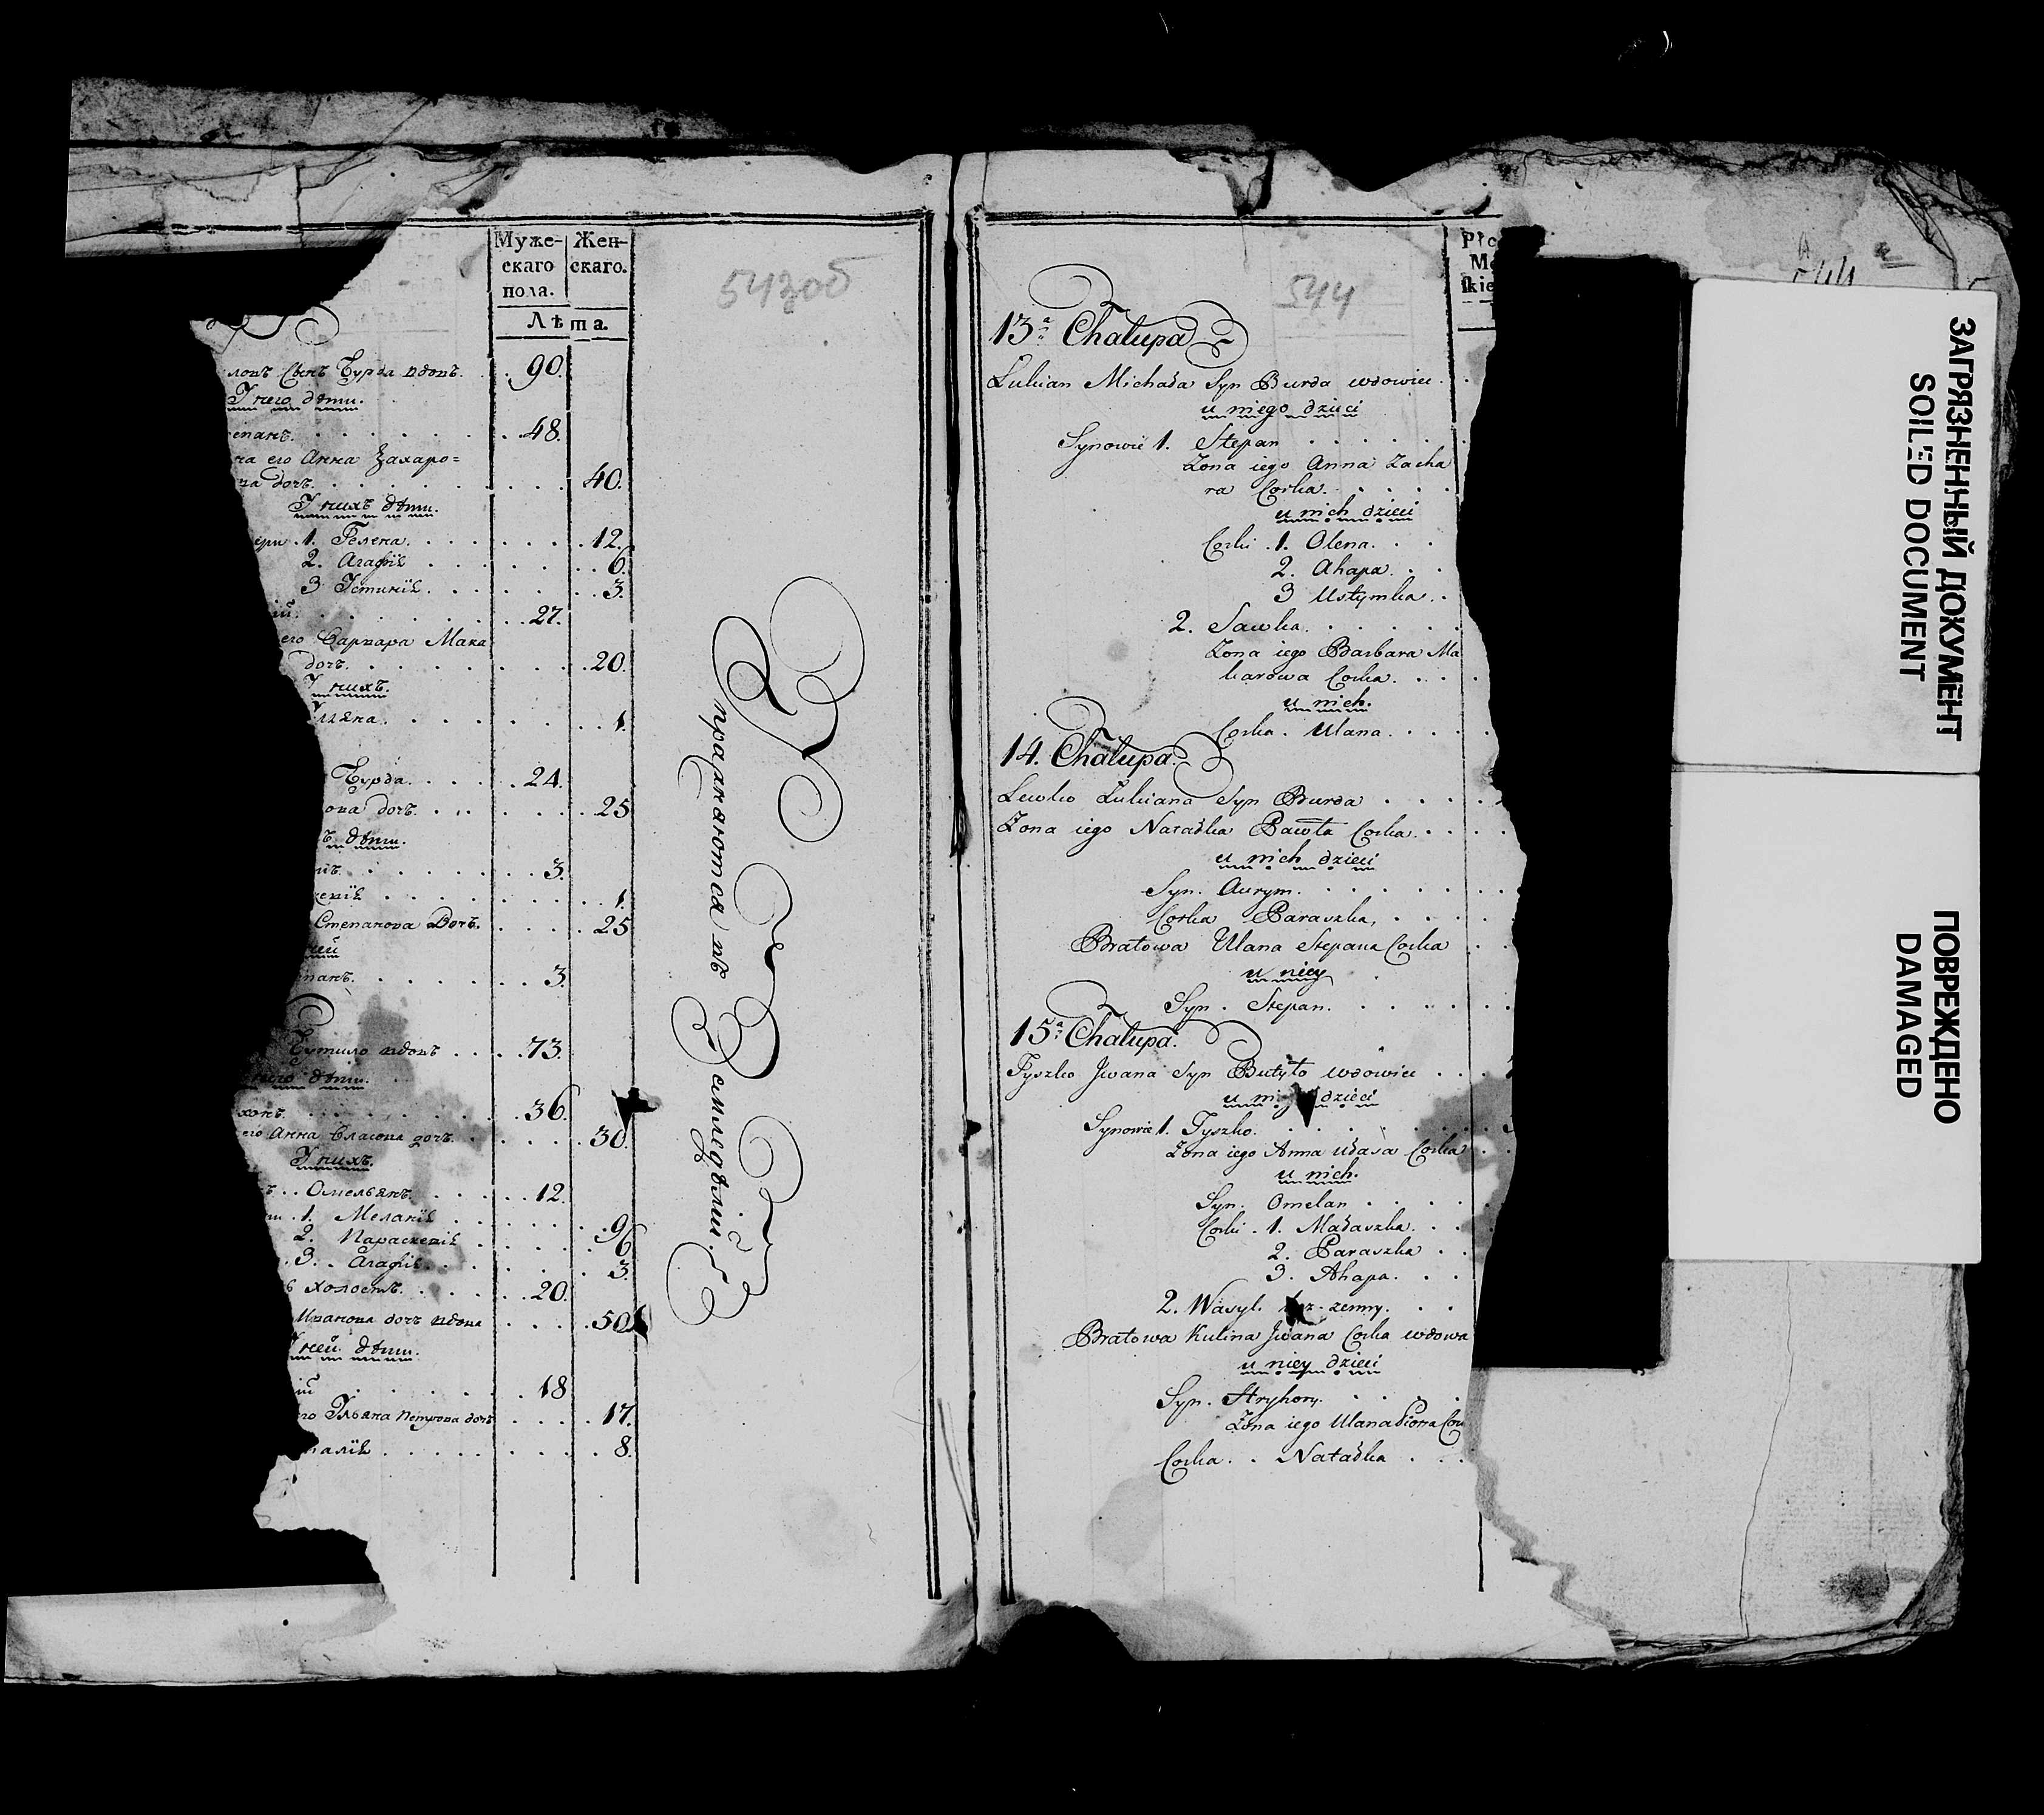 543об
Муже- Жен-
скаго скаго.
пола.
Лѣта.
ловъ Сынъ Бурда вдовъ. 90.
У него дѣти.
епанъ. 48.
на его Анна Захаро=
ва дочь. 40.
У нихъ дѣти.
ери. 1. Гелена. 12.
2. Агафiя 6.
3 Iстинiя. 3.
iй. 27.
его Варвара Мака
дочь. 20.
У нихъ.
Ульяна. 1.
Бурда. 24.
ова дочь. 25
ъ дѣти.
3.
1.
Степанова Дочь. 25
ней
панъ. 3.
Бутило вдовъ 73.
него дѣти.
хонъ. 36.
его Анна Власова дочь. 30.
У нихъ.
Омельянъ. 12.
1. Меланiя 9.
2. Параскевiя 6.
3. Агафiя. 3.
ъ холостъ. 20.
Иванова дочь вдова 50
У ней дѣти.
iй 18
го Ульяна Петрова дочь 17.
талiя 8.
Упражняются въ Земледѣлiй.
544
Płc
Mę
skie
13.ª Chałupa
Łukian Michała Syn Burda wdowiec.
u niego dzieci
Synowie 1. Stepan
Żona iego Anna Zacha
ra Corka.
u nich dzieci
Corki. 1. Olena.
2. Ahapa.
3 Ustymka.
2. Sawka.
Żona iego Barbara Ma
karowa Corka.
u nich.
Corka. Ulana.
14. Chałupa.
Lewko Łukiana Syn Burda
Żona iego Natałka Pawła Corka.
u nich dzieci
Syn. Awrym.
Corka Paraszka,
Bratowa Ulana Stepana Corka
u niey
Syn. Stepan.
15.ª Chałupa.
Tyszko Jwana Syn Butyło wdowiec
u dzieci
Synowie 1. Tyszko.
Żona iego Anna Ułasa Corka
u nich.
Syn. Omelan
Corki. 1. Małaszka.
2. Paraszka
3. Ahapa.
2. Wasyl. zenny.
Bratowa Kulina Jwana Corka wdowa
u niey dzieci
Syn. Hryhory.
Żona iego Ulana Piotra Cor
Corka. Natałka
544
ЗАГРЯЗНЕННЫЙ ДОКУМЕНТ
SOILED DOCUMENT
ПОВРЕЖДЕНО
DAMAGED